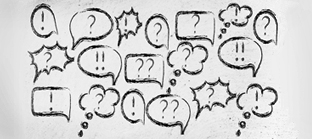 ! ? ! ? ? ? ?
? !! ?? ? !!
! ? ! ?? ? !